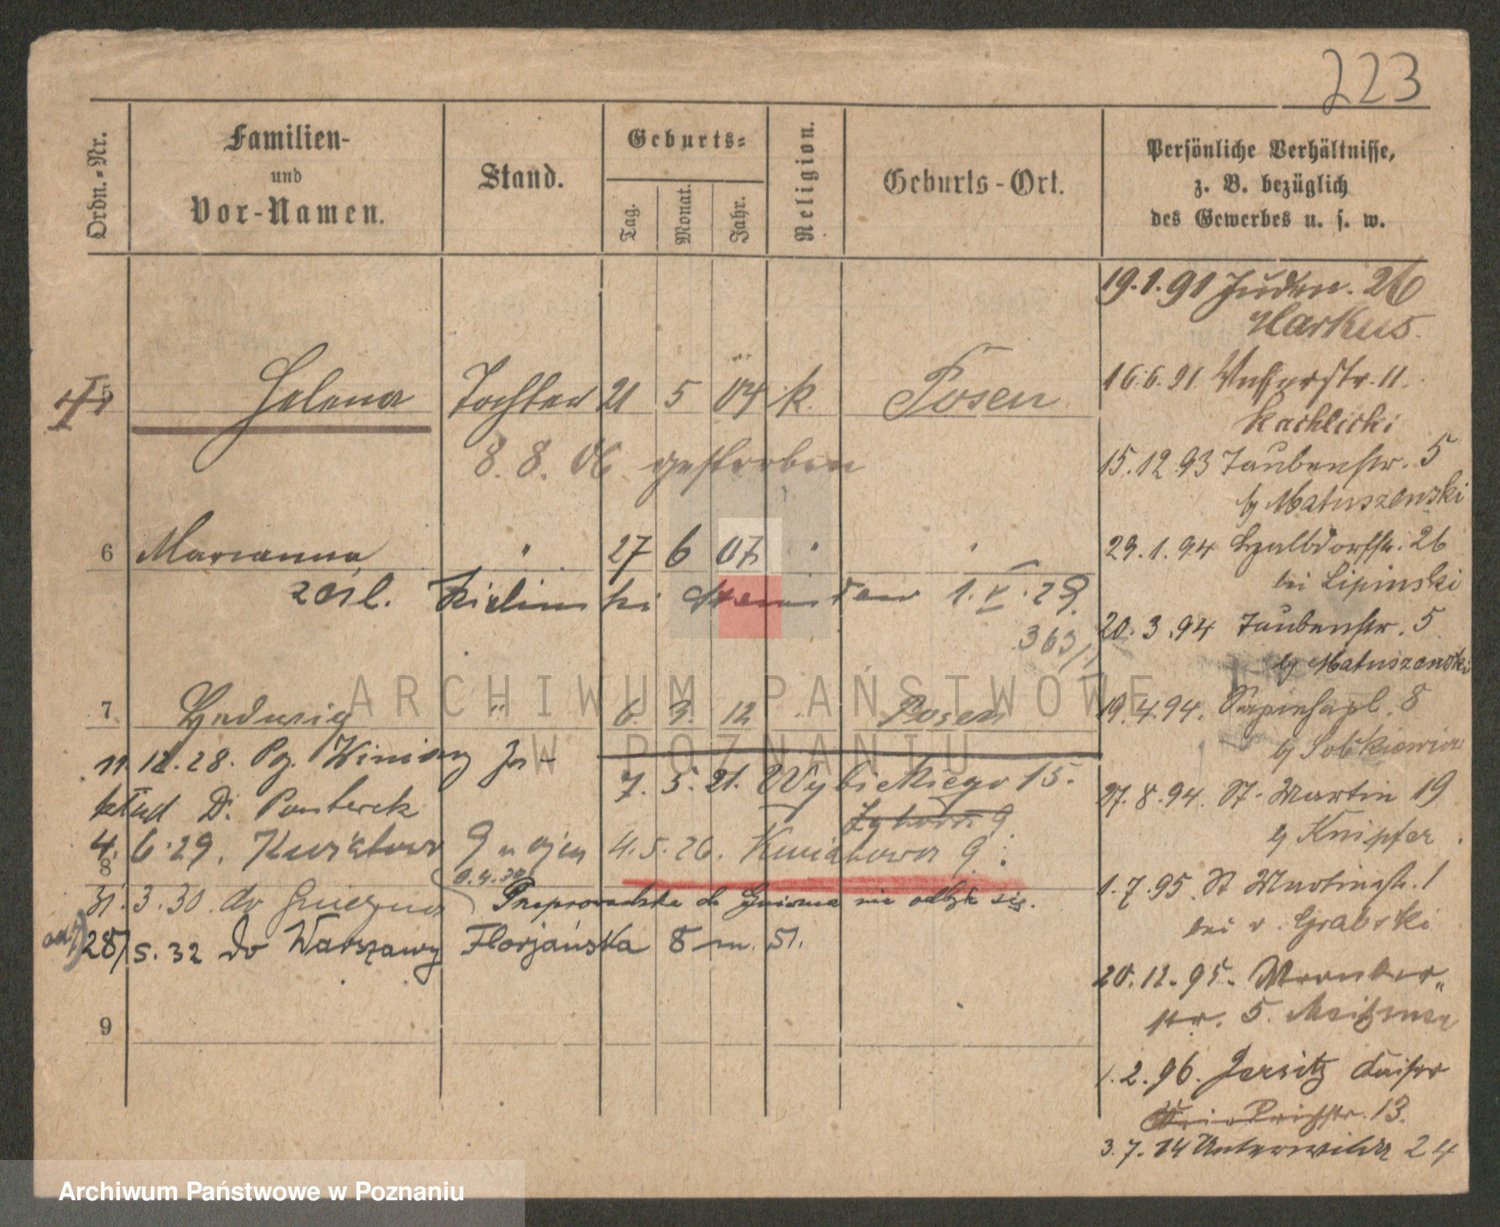 223
Ordn.-Nr.
Familien-
und
Vor-Namen.
Stand.
Geburts-
Tag.
Monat.
Jahr.
Religion.
Geburts-Ort.
Persönliche Verhältnisse,
z. B. bezüglich
des Gewerbes u. s. w.
5 Helena Tochter 21 5 04 k. Posen
8. 8. 06 gestorben
6 Marianna " 27 6 07 " "
1. V. 28.
363/
7 Hedwig " 6. 3. 12 Posen
11. 12. 28. Pg. Winiary Za-
kład Dr.
7. 5. 21. Wybickiego 15.
4. 6. 29. 9
4. 5. 26. Kwiatowa 9.
8
31. 3. 30. do Gniezna
Przeprowadzka do Gniezna nie odbyła się.
28/5. 32 do Warszawy Florjańska 8 m. 51.
9
19. 1. 91 Juden. 26
Markus.
16. 6. 91 11.
Kachlicki
15. 12. 93 Taubenstr. 5
b/ Matuszewski
29. 1. 94 Halbdorfstr. 26
bei Lipinski
20. 3. 94 Taubenstr. 5
b/ Matuszewski
19. 4. 94. Sapiehapl. 8
b/ Sobkiewicz
27. 8. 94. St. Martin 19
b/ Knipfer
1. 7. 95. St Martinstr. 1
bei v. Grabski
20. 12. 95.
str. 5.
1. 2. 96. Jersitz Kaiser
Friedrichstr. 13.
3. 7. 14 Unterwilda 24
ARCHIWUM PAŃSTWOWE
W POZNANIU
Archiwum Państwowe w Poznaniu